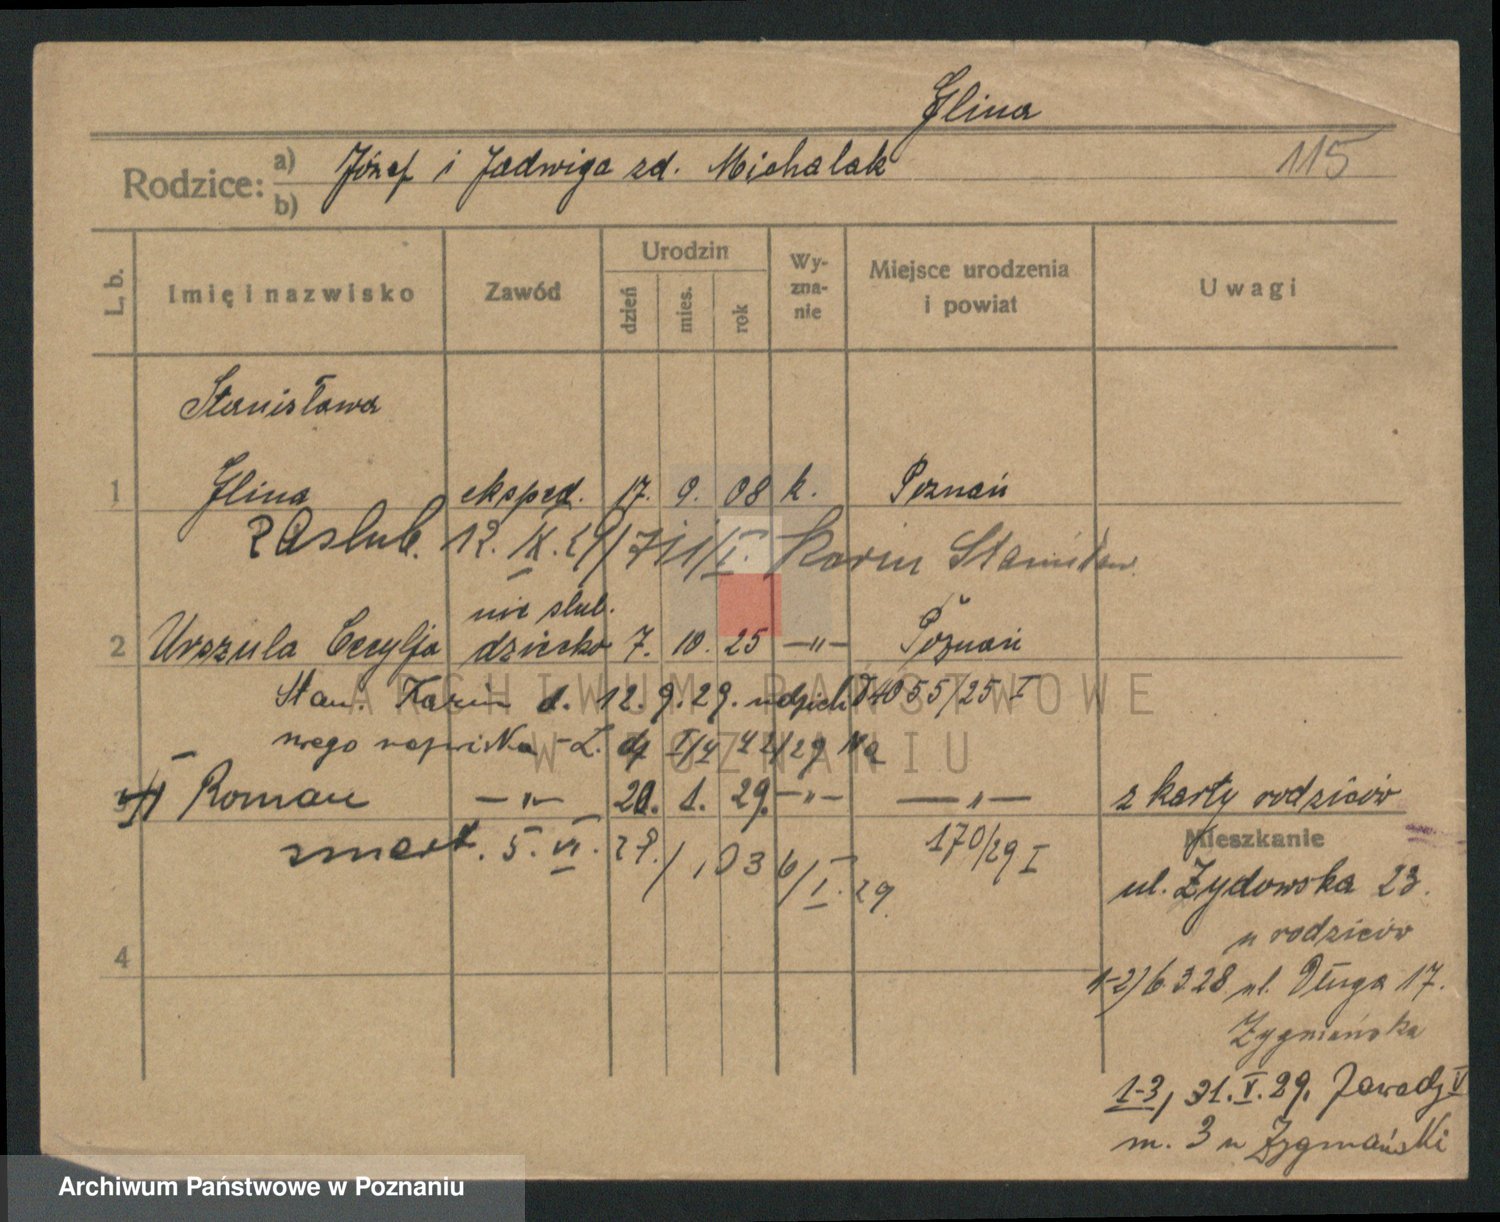 Glina
115
Rodzice: a) Józef i Jadwiga zd. Michalak
b)
L. b.
Imię i nazwisko
Zawód
Urodzin
dzień
mies.
rok
Wy-
zna-
nie
Miejsce urodzenia
i powiat
Uwagi
Stanisława
1 Glina eksped. 17. 9. 08 k. Poznań
zaślub. 12. IX. 29/711/I. Karin Stanisław
nie ślub.
2 Urszula Cecylja dziecko 7. 10. 25 —"— Poznań
Stan. Karin d. 12. 9. 29. 4055/25 I
Roman —"— 20. 1. 29. —"— —"— z karty rodziców
zmarł. 5. VI. 29. 170/29 I
Mieszkanie
ul. Żydowska 23.
u rodziców
4
1-2) 6 3 28 ul. Długa 17.
Zygmańska
1-3, 31. V. 29. Zawady V
m. 3 u Zygmański
ARCHIWUM PAŃSTWOWE
W POZNANIU
Archiwum Państwowe w Poznaniu